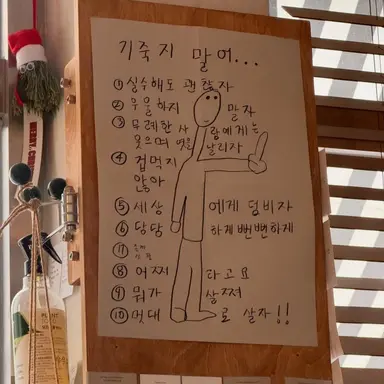 기죽지 말어...
① 실수해도 괜찮자
② 우울하지 말자
③ 무례한 사람에게는
웃으며 엿을 날리자
④ 겁먹지
않아
⑤ 세상에게 덤비자
⑥ 당당하게 뻔뻔하게
⑦
⑧ 어쩌라고요
⑨ 뭐가 살쪄
⑩ 멋대로 살자!!